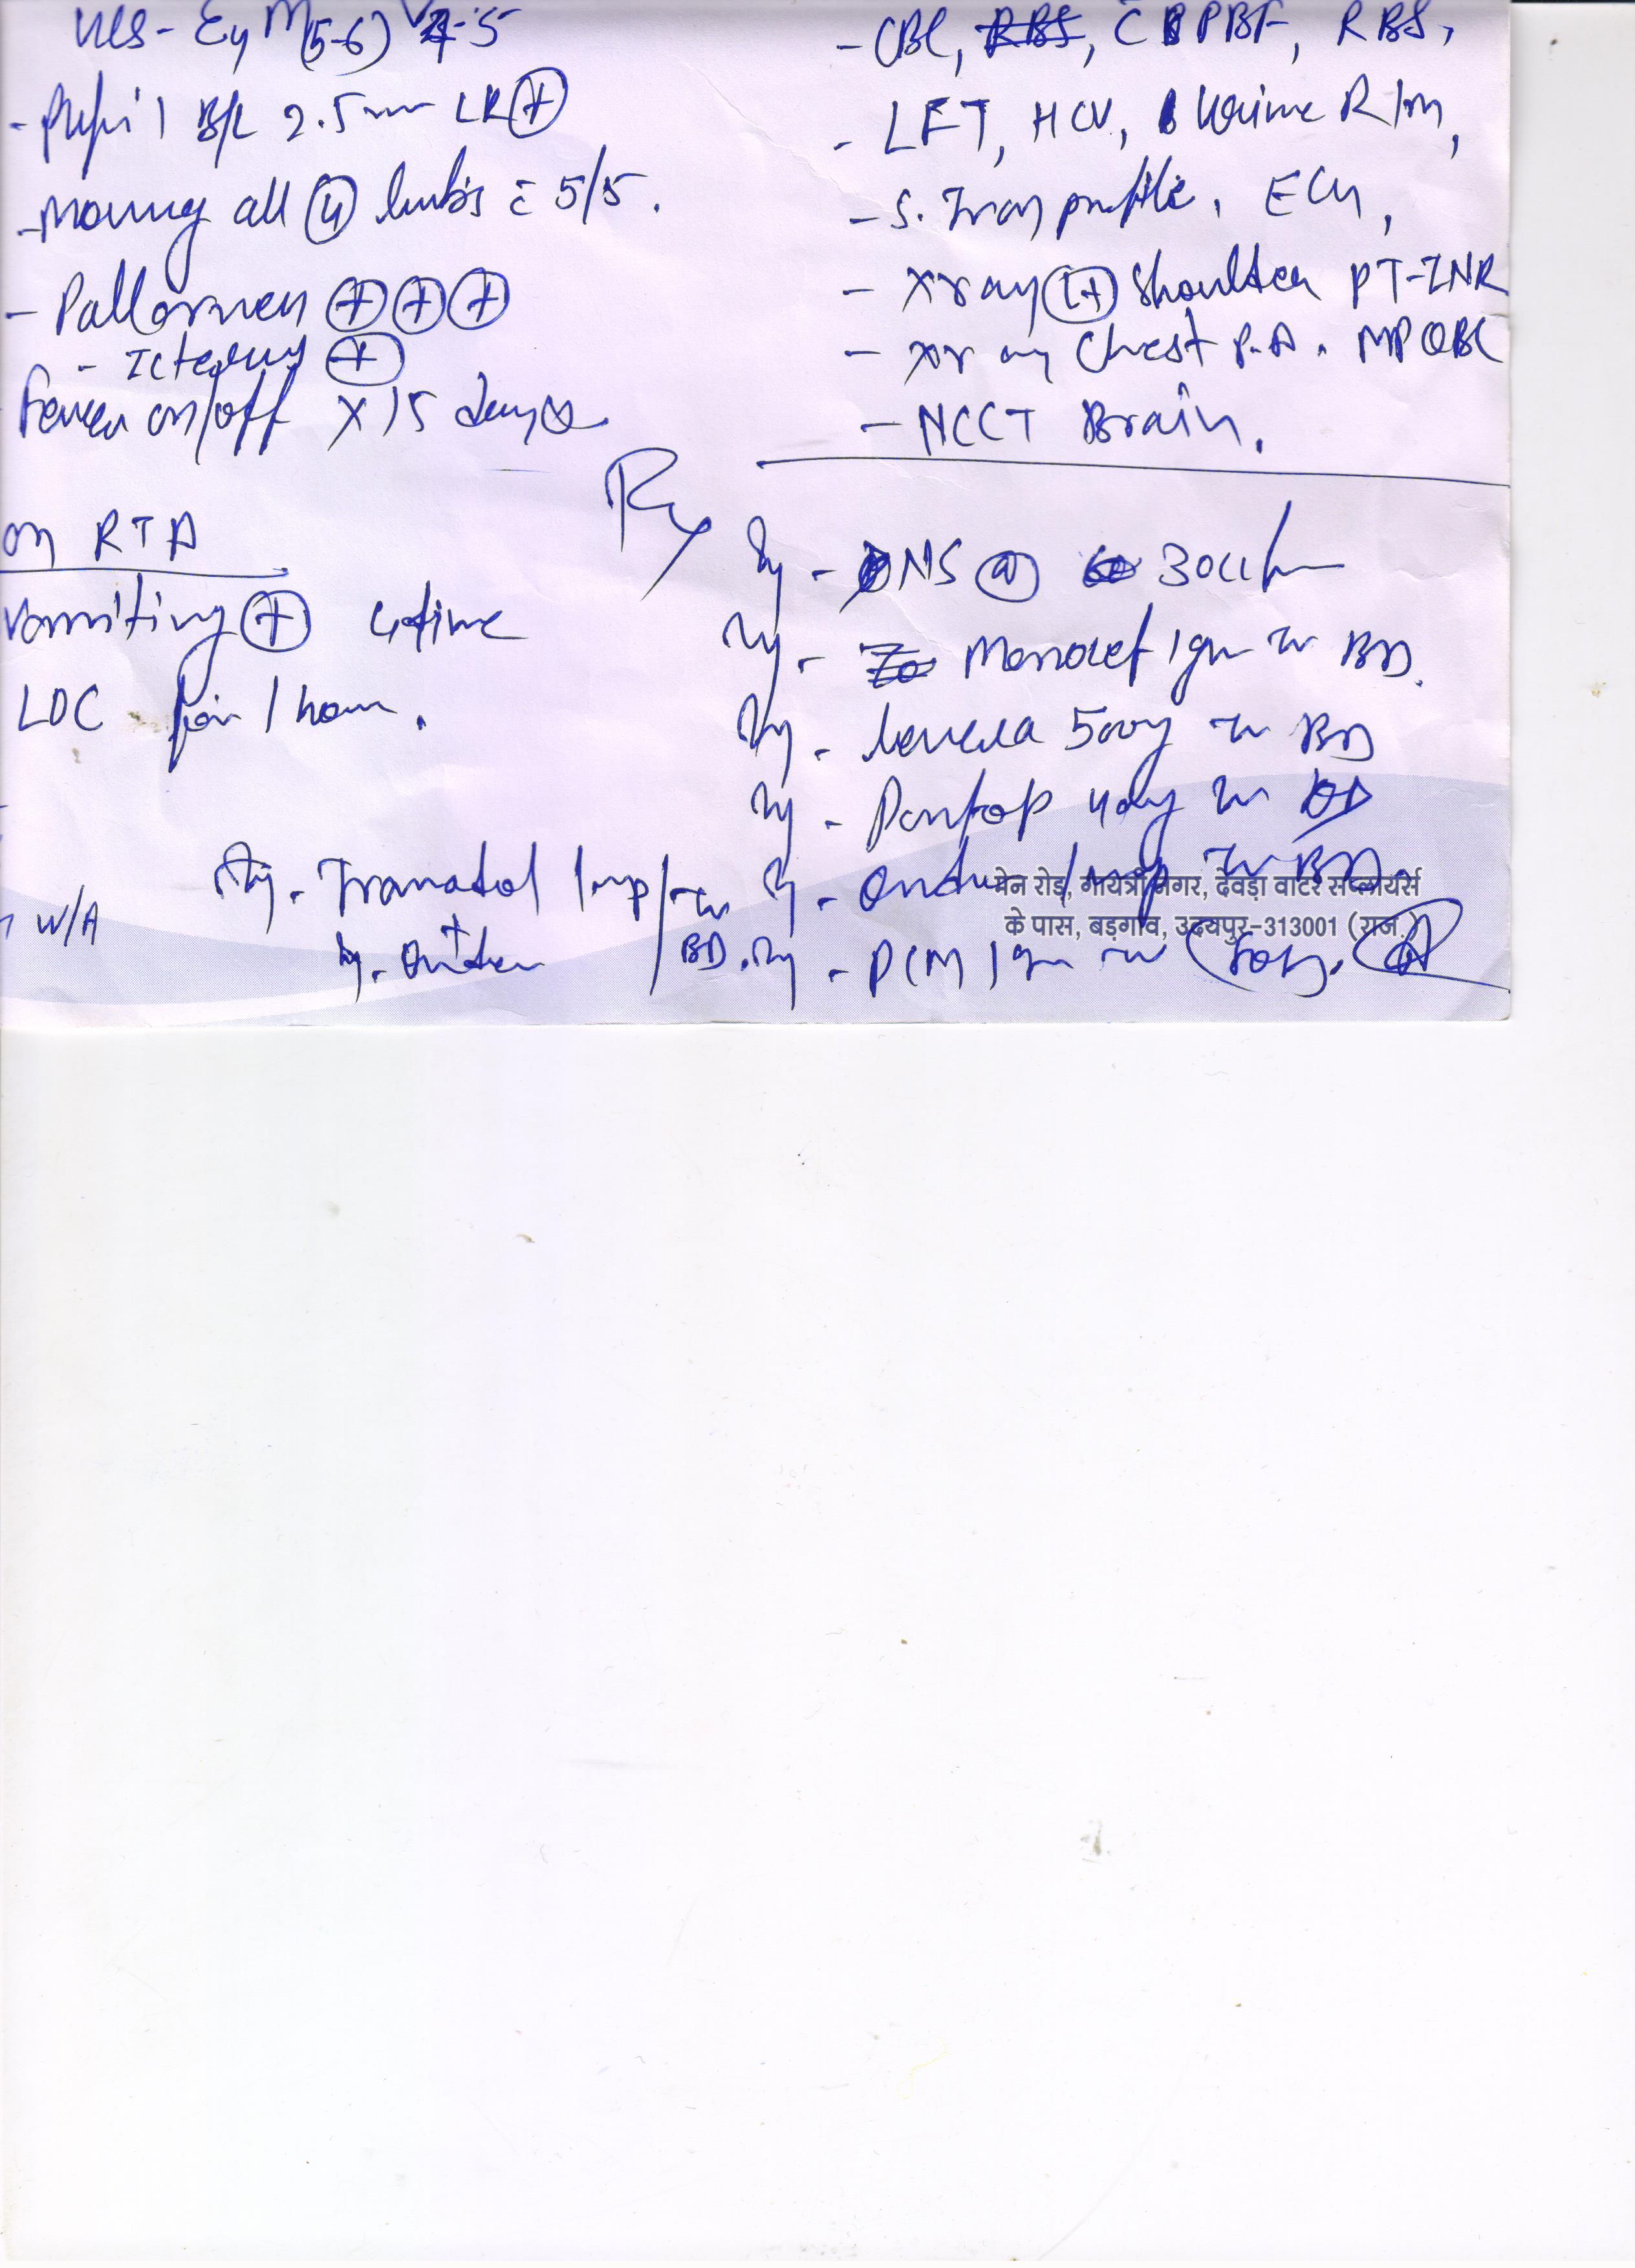 GCS - E4 M(5-6) V4-5
- Pupil B/L 2.5mm LR (+)
- Moving all (4) limbs c̄ 5/5.
- Pallorness (+) (+) (+)
- Icterus (+)
Fever on/off x 15 days
on RTA
Vomiting (+) 4 time
LOC for 1 hour.
W/A
- CBC, RBS, c̄ PBF, RBS,
- LFT, HCV, Urine R/M,
- S. Iron profile, ECG,
- Xray (Lt) Shoulder PT-INR
- Xray Chest P.A. MPQBC
- NCCT Brain.
Rx
Inj - DNS @ 30cc/hr
Inj - Monocef 1gm IV BD.
Inj - Levera 500mg IV BD
Inj - Pantop 40mg IV OD
Inj - Ondem 1amp IV BD.
Inj - PCM 1gm IV SOS.
Inj - Tramadol 1amp IV
+
Inj - Ondem BD.
मेन रोड़, गायत्री नगर, देवड़ा वाटर सप्लायर्स
के पास, बड़गांव, उदयपुर-313001 (राज.)